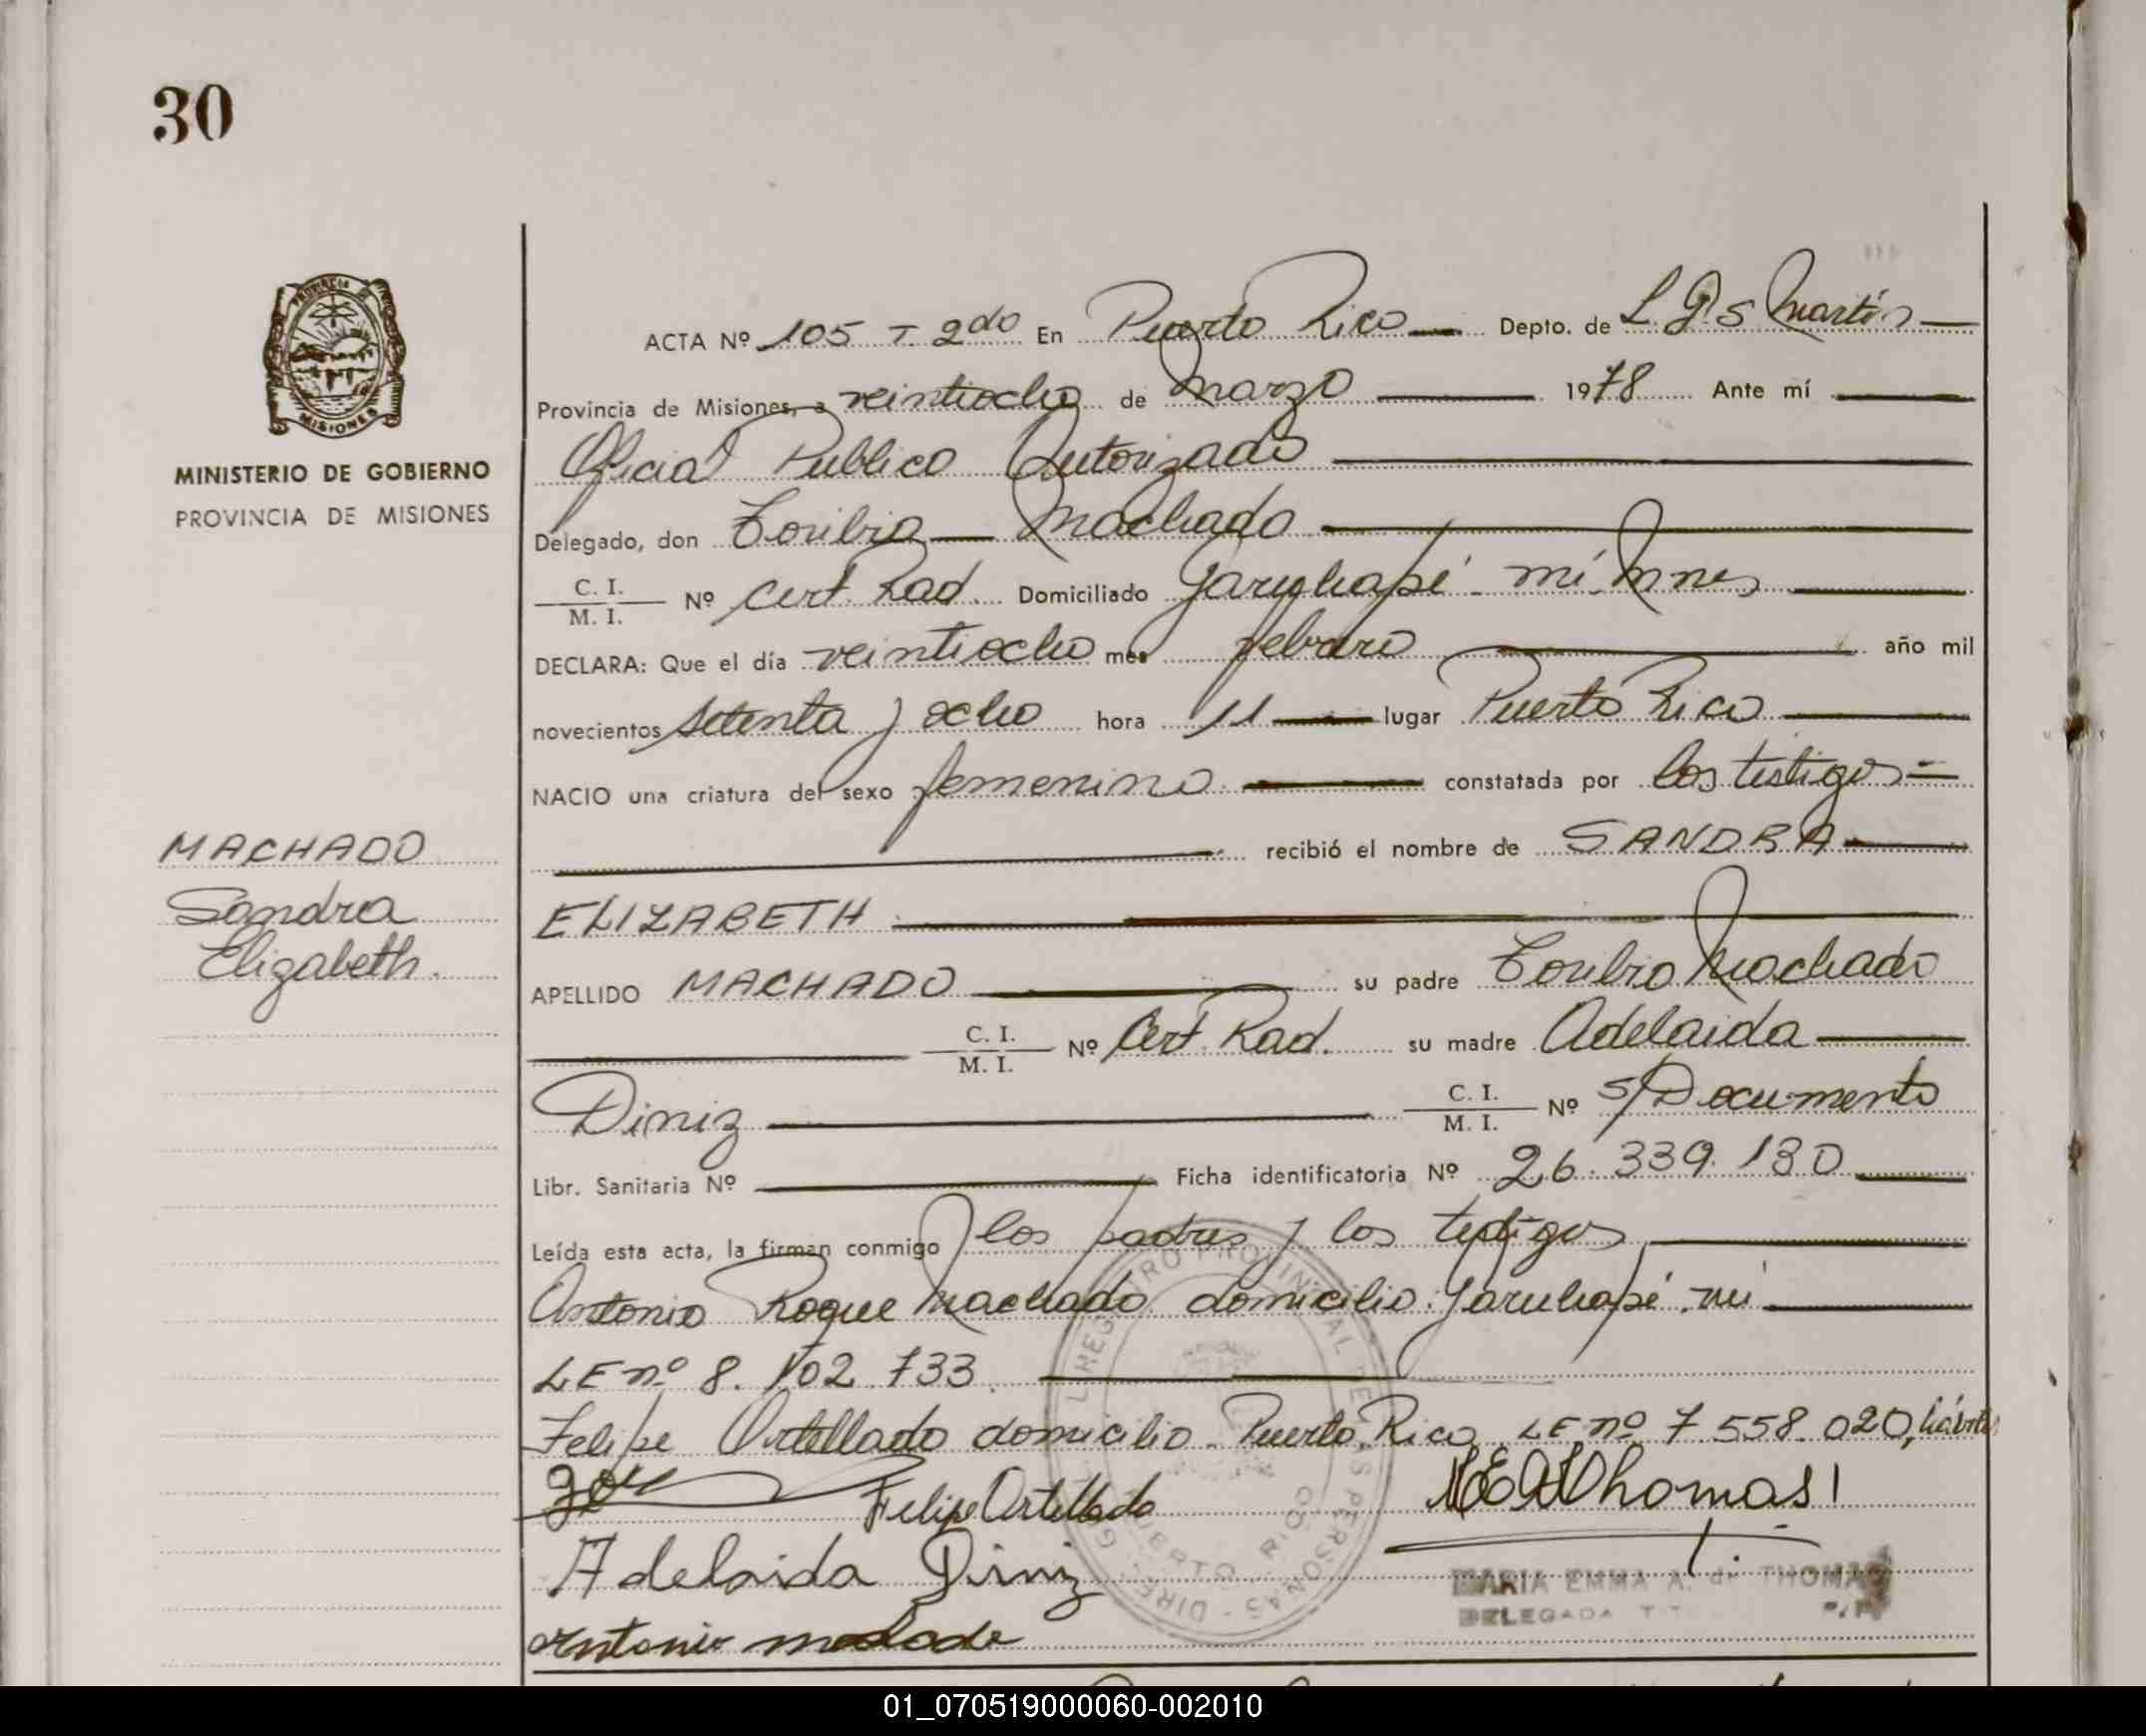 30
PROVINCIA DE
MISIONES
MINISTERIO DE GOBIERNO
PROVINCIA DE MISIONES
MACHADO
Sandra
Elizabeth.
ACTA Nº 105 T. 2do En Puerto Rico Depto. de L G S Martín
Provincia de Misiones, a veintiocho de Marzo 1978 Ante mí
Oficial Publico Autorizado
Delegado, don Toribio Machado
C. I.
M. I. Nº Cert. Rad. Domiciliado Garuhapé-mí. Mnes
DECLARA: Que el día veintiocho mes febrero año mil
novecientos setenta y ocho hora 11 lugar Puerto Rico
NACIO una criatura del sexo femenino constatada por los testigos
recibió el nombre de SANDRA
ELIZABETH
APELLIDO MACHADO su padre Toribio Machado
C. I.
M. I. Nº Cert Rad. su madre Adelaida
Diniz C. I.
M. I. Nº s/Documento
Libr. Sanitaria Nº Ficha identificatoria Nº 26.339.130
Leída esta acta, la firman conmigo los padres y los testigos
Antonio Roque Machado domicilio: Garuhapé-mi
LE nº 8.102.733.
Felipe Ortellado domicilio. Puerto Rico LE nº 7.558.020,
Felipe Ortellado
Thomas
Adelaida Diniz
MARIA EMMA A. de THOMAS
DELEGADA
Antonio
REGISTRO PROVINCIAL DE LAS PERSONAS
PUERTO RICO
01_070519000060-002010